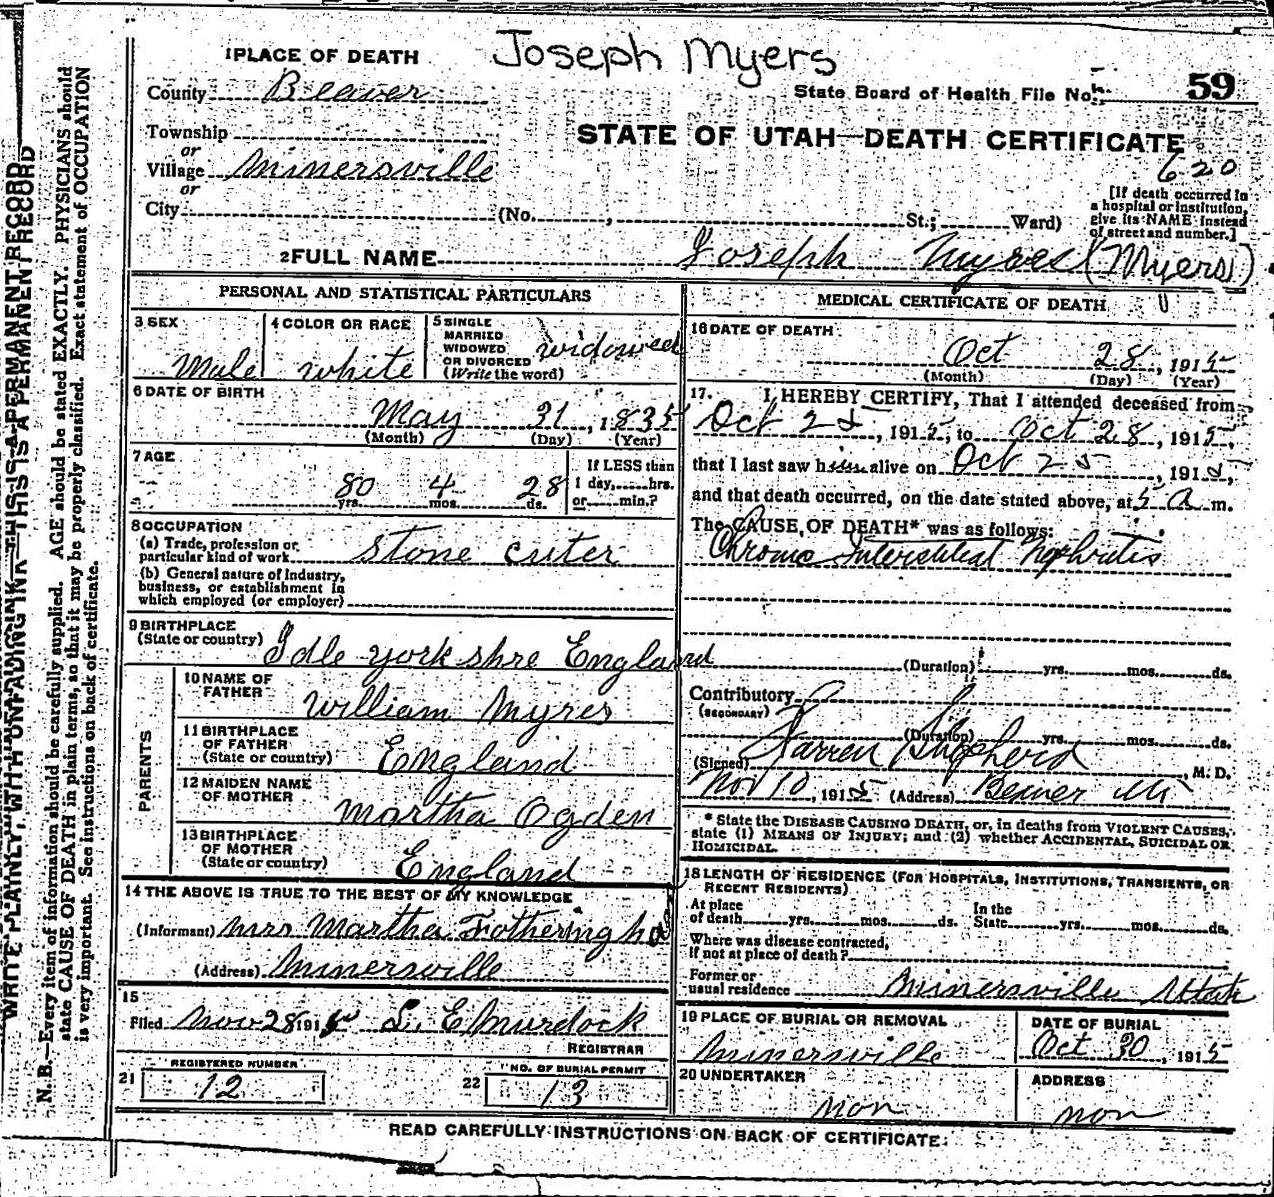 Joseph Myers
1 PLACE OF DEATH
County Beaver
State Board of Health File No. 59
Township
or
Village Minersville
or
City (No. , St.; Ward)
STATE OF UTAH—DEATH CERTIFICATE
620
[If death occurred in a hospital or institution, give its NAME instead of street and number.]
2 FULL NAME Joseph Myres (Myers)
PERSONAL AND STATISTICAL PARTICULARS
3 SEX
Male
4 COLOR OR RACE
white
5 SINGLE
MARRIED
WIDOWED
OR DIVORCED
(Write the word)
widowed
6 DATE OF BIRTH
May 31, 1835
(Month) (Day) (Year)
7 AGE
80 yrs. 4 mos. 28 ds.
If LESS than
1 day, hrs.
or min.?
8 OCCUPATION
(a) Trade, profession or
particular kind of work Stone cuter
(b) General nature of Industry,
business, or establishment in
which employed (or employer)
9 BIRTHPLACE
(State or country) Idle yorkshre England
PARENTS
10 NAME OF
FATHER
William Myres
11 BIRTHPLACE
OF FATHER
(State or country) England
12 MAIDEN NAME
OF MOTHER
Martha Ogden
13 BIRTHPLACE
OF MOTHER
(State or country) England
14 THE ABOVE IS TRUE TO THE BEST OF MY KNOWLEDGE
(Informant) Mrs Martha
(Address) Minersville
15
Filed Nov 28 1915 L. E Murdock
REGISTRAR
21 REGISTERED NUMBER
12
22 NO. OF BURIAL PERMIT
13
MEDICAL CERTIFICATE OF DEATH
16 DATE OF DEATH
Oct 28, 1915
(Month) (Day) (Year)
17. I HEREBY CERTIFY, That I attended deceased from
Oct 25, 1915, to Oct 28, 1915,
that I last saw him alive on Oct 25, 1915,
and that death occurred, on the date stated above, at 5 a m.
The CAUSE OF DEATH* was as follows:
Chronic Interstitial Nephritis
(Duration) yrs. mos. ds.
Contributory
(SECONDARY)
(Duration) yrs. mos. ds.
(Signed) Warren Shepherd, M. D.
Nov 10, 1915 (Address) Beaver Ut
* State the DISEASE CAUSING DEATH, or, in deaths from VIOLENT CAUSES,
state (1) MEANS OF INJURY; and (2) whether ACCIDENTAL, SUICIDAL OR
HOMICIDAL.
18 LENGTH OF RESIDENCE (FOR HOSPITALS, INSTITUTIONS, TRANSIENTS, OR
RECENT RESIDENTS)
At place
of death yrs. mos. ds.
In the
State yrs. mos. ds.
Where was disease contracted,
if not at place of death?
Former or
usual residence Minersville Utah
19 PLACE OF BURIAL OR REMOVAL
Minersville
DATE OF BURIAL
Oct 30, 1915
20 UNDERTAKER
non
ADDRESS
non
READ CAREFULLY INSTRUCTIONS ON BACK OF CERTIFICATE.
WRITE PLAINLY, WITH UNFADING INK—THIS IS A PERMANENT RECORD
N. B.—Every item of information should be carefully supplied. AGE should be stated EXACTLY. PHYSICIANS should
state CAUSE OF DEATH in plain terms, so that it may be properly classified. Exact statement of OCCUPATION
is very important. See instructions on back of certificate.